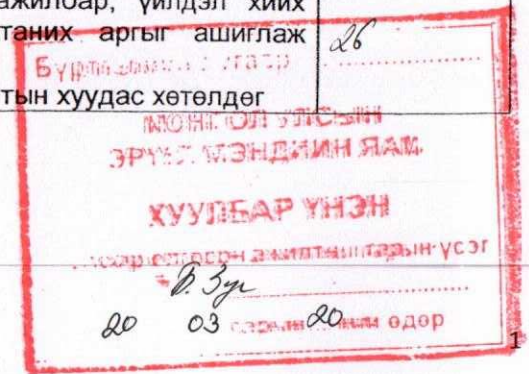 ажилбар, үйлдэл хийх
таних аргыг ашиглаж
26
тын хуудас хөтөлдөг
МОНГОЛ УЛСЫН
ЭРҮҮЛ МЭНДИЙН ЯАМ
ХУУЛБАР ҮНЭН
ажилтны гарын үсэг
20 03 20 өдөр
1